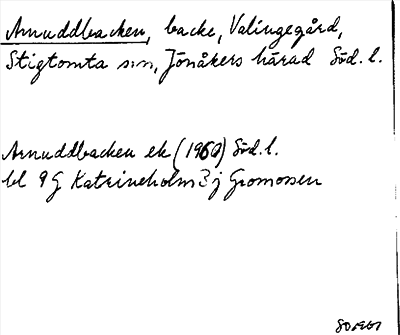 Arnuddbacken, backe, Valingegård,
Stigtomta sn, Jönåkers härad Söd. l.
Arnuddbacken ek (1960) Söd. l.
bl 9 G Katrineholm 3 j Gromossen